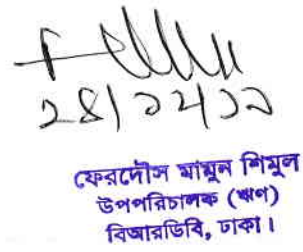 ২৪/১২/১৯
ফেরদৌস মামুন শিমুল
উপপরিচালক (ঋণ)
বিআরডিবি, ঢাকা।